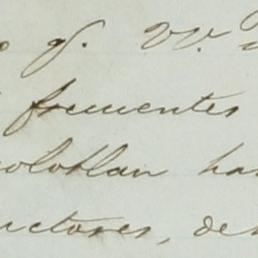 q. VV.
frementes
olotlan ha
uctores, de